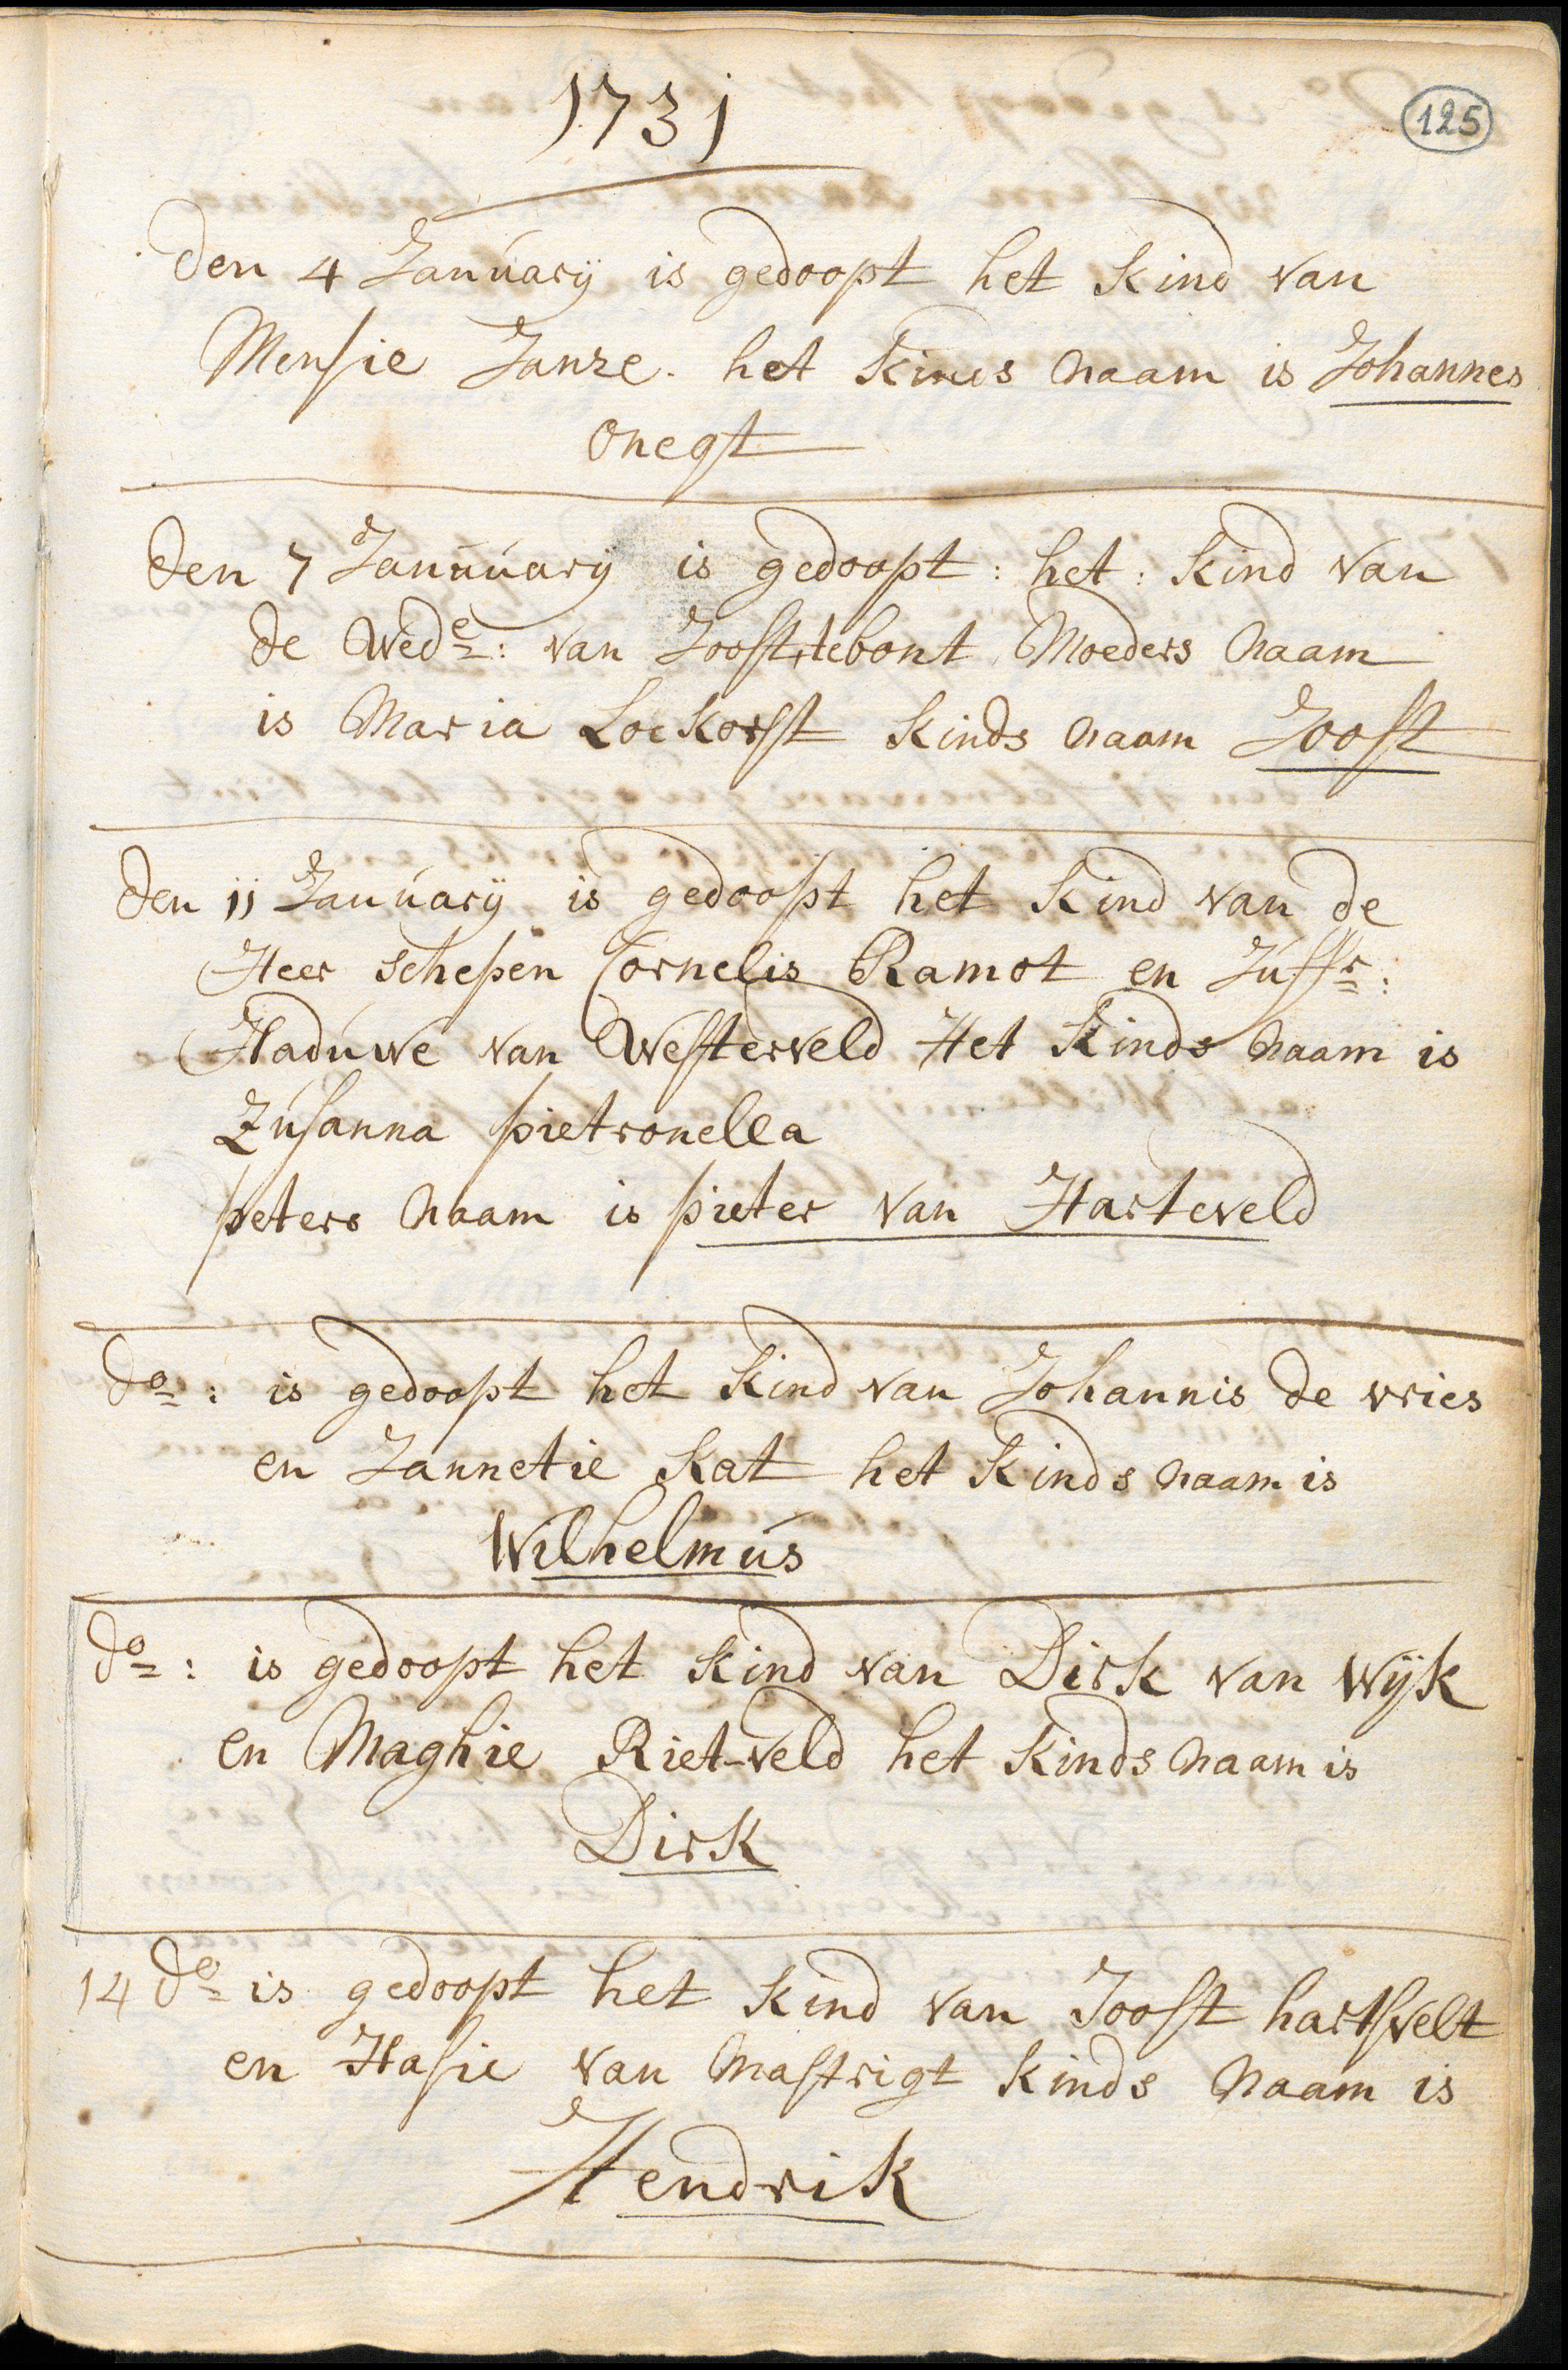 1731
125
den 4 January is gedoopt het kind van
Mensie Janze. het kinds naam is Johannes
onegt
den 7 Januuary is gedoopt: het: kind van
de Wede: van Joost tebont Moeders naam
is Maria Lockorst kinds naam Joost
den 11 January is gedoopt het kind van de
Heer schepen Cornelis Ramot en Juffr:
Haduwe van Westerveld Het kinds naam is
Zusanna pietronella
peters naam is pieter van Harteveld
do: is gedoopt het kind van Johannis de vries
en Jannetie kat het kinds naam is
Wilhelmus
do: is gedoopt het kind van Dirk van Wijk
en Maghie Riet-veld het kinds naam is
Dirk
14 do is gedoopt het kind van Joost hartsvelt
en Hasie van Mastrigt kinds naam is
Hendrik